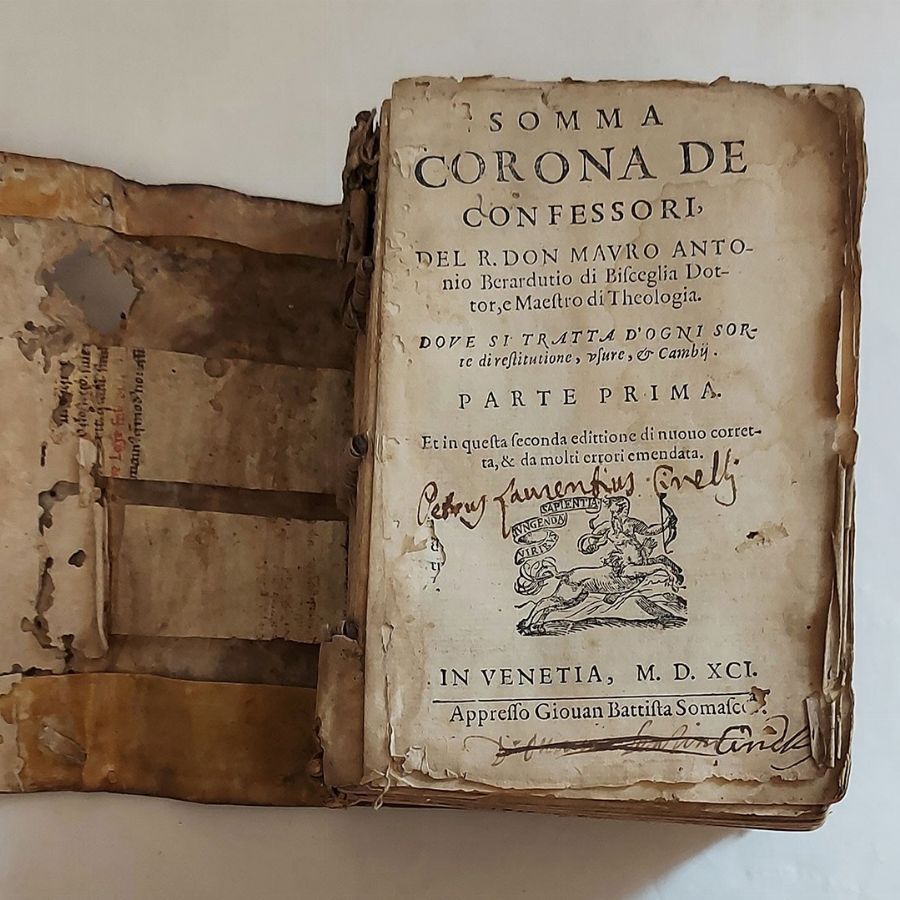 SOMMA
CORONA DE
CONFESSORI,
DEL R. DON MAVRO ANTO-
nio Berardutio di Bisceglia Dot-
tor, e Maestro di Theologia.
DOVE SI TRATTA D'OGNI SOR-
te di restitutione, vsure, & Cambij.
PARTE PRIMA.
Et in questa seconda edittione di nuouo corret-
ta, & da molti errori emendata.
Petrus Laurentius Cirelli
SAPIENTIA
IVNGENDA
VIRIBVS
IN VENETIA, M. D. XCI.
Appresso Giouan Battista Somasco.